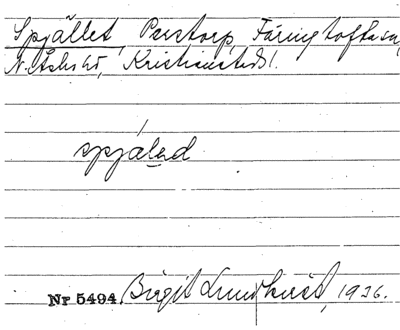 Spjället, Perstorp, Färingtofta sn,
N. Åsbo hd, Kristianstads l.
spjäləd
Nr 5494. Birgit Lundkvist, 1936.